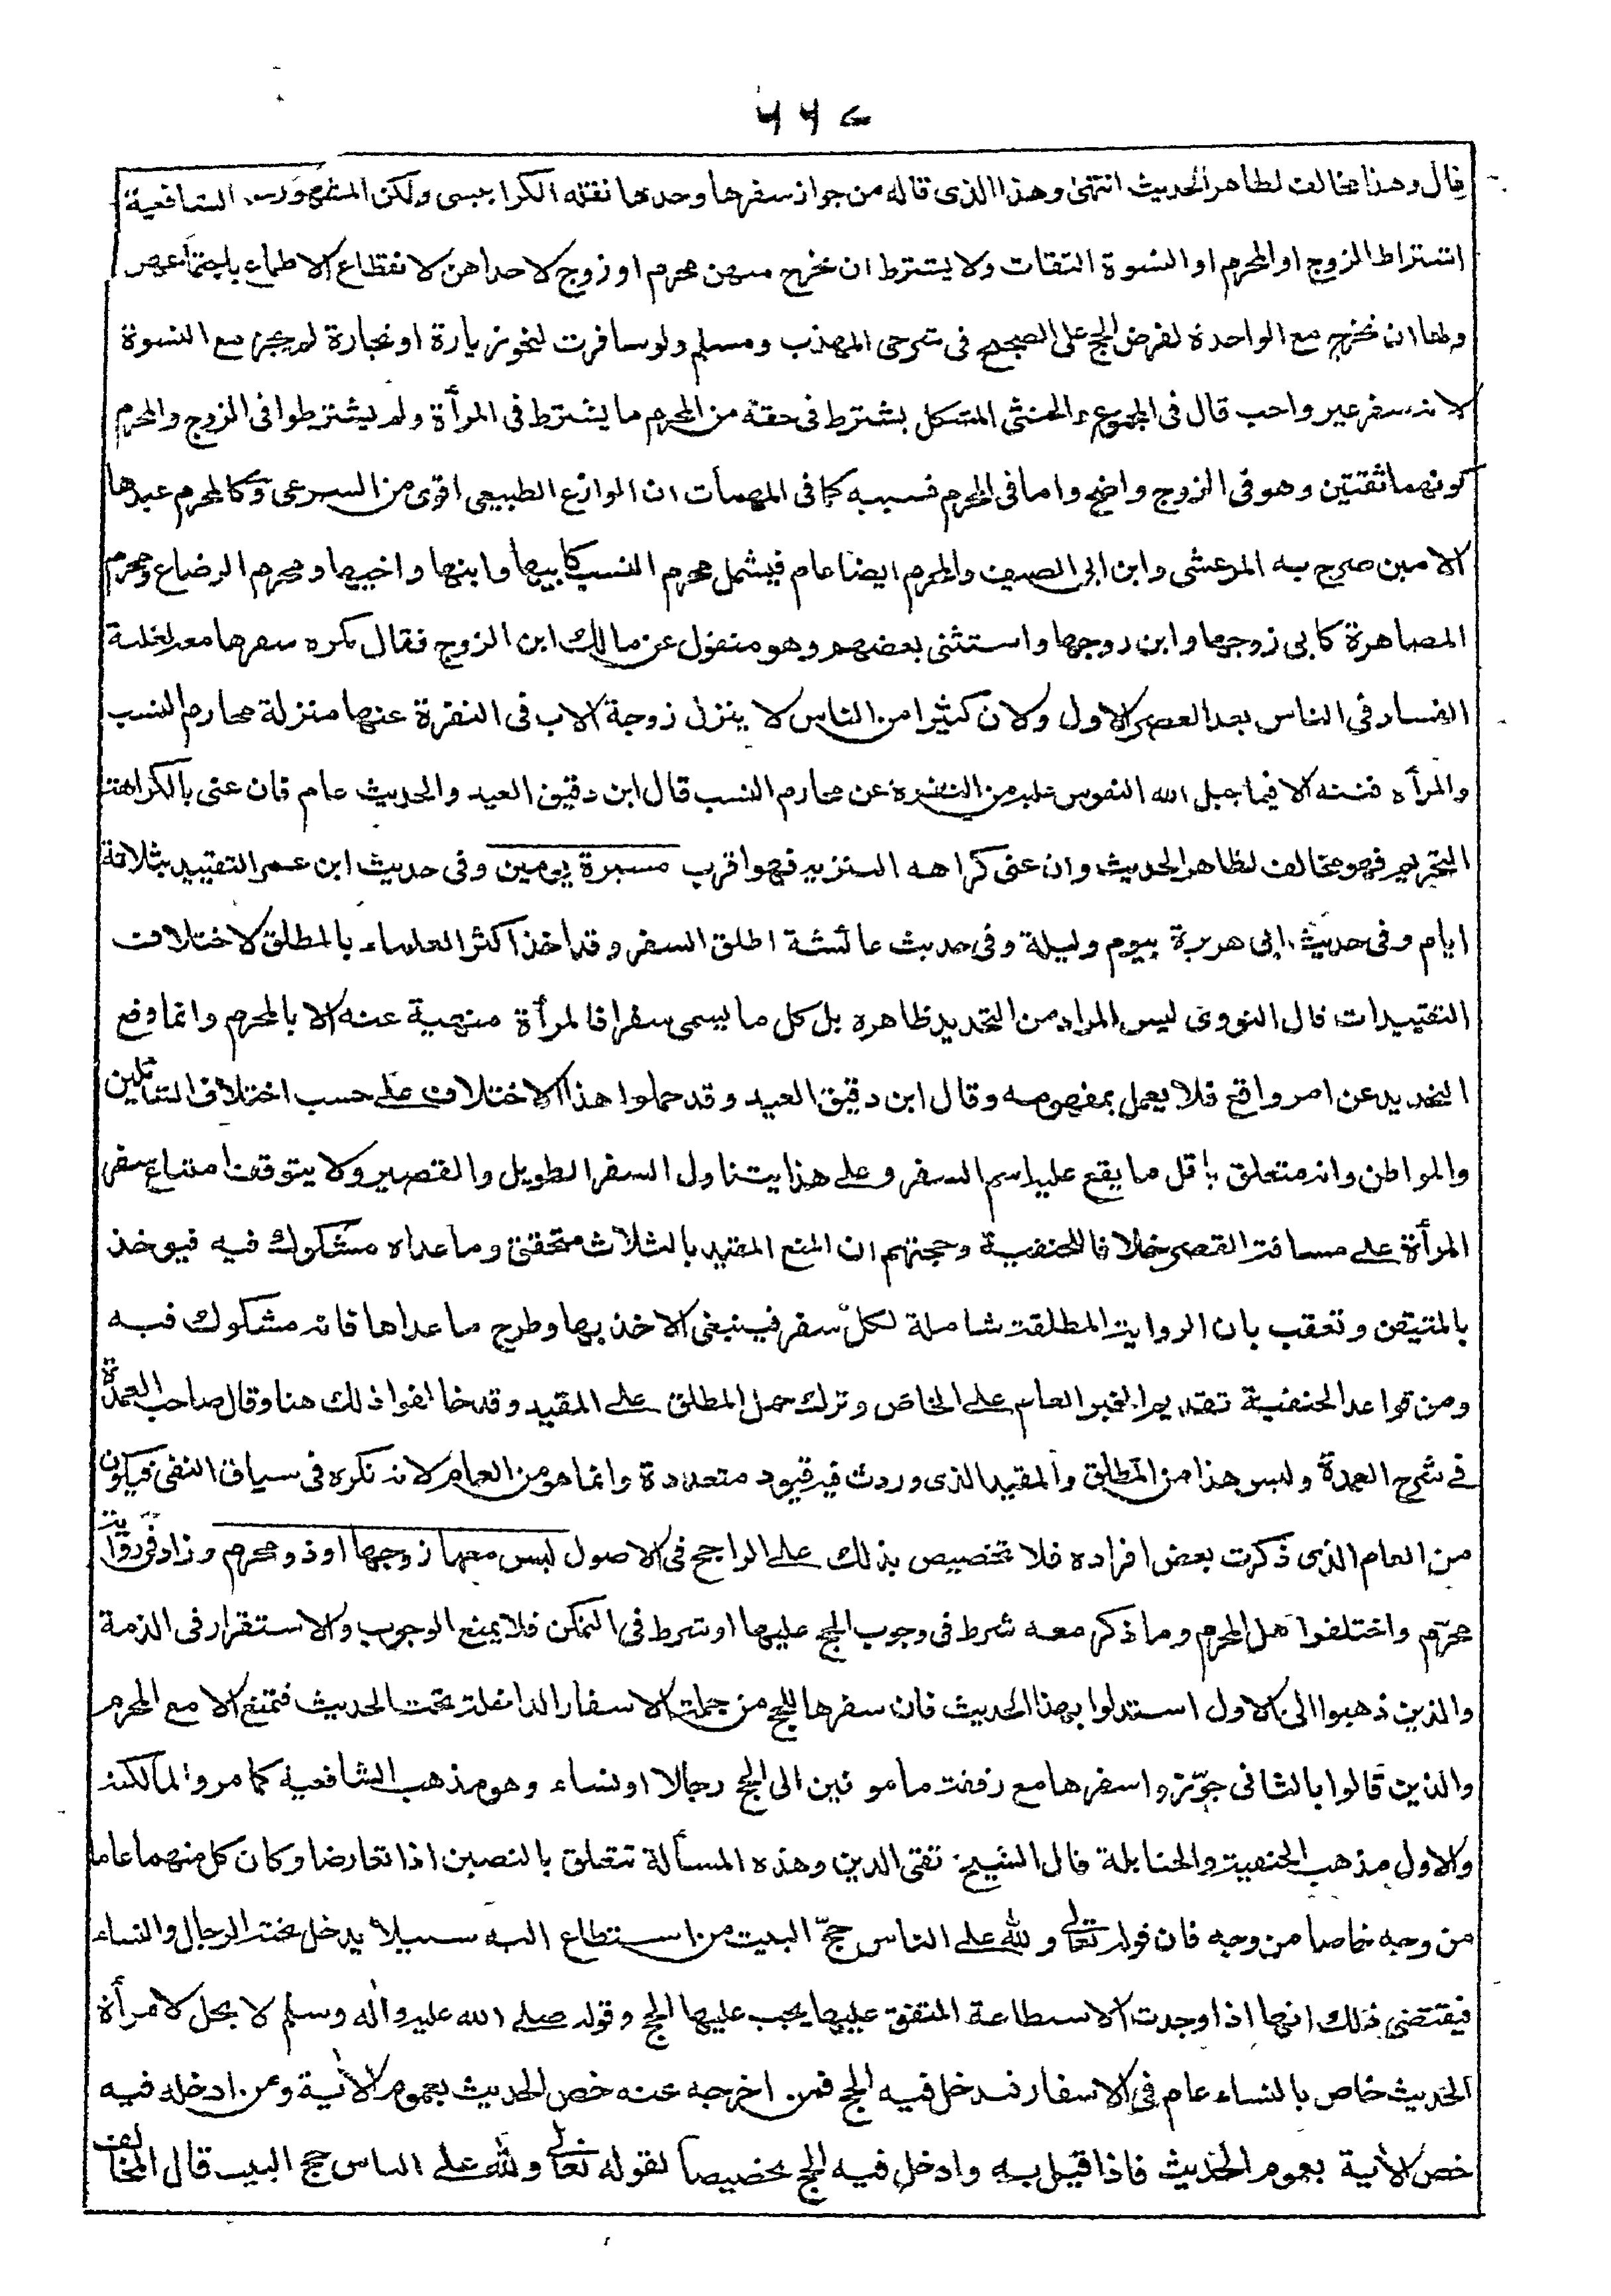 ٦٦٧
قال وهذا مخالف لظاهر الحديث انتهى وهذا الذى قاله من جواز سفرها وحدها نقله الكرابيسى ولكن المشهور الشافعية
اشتراط الزوج او المحرم او النسوة الثقات ولا يشترط ان يخرج معهن محرم او زوج لاحداهن لانقطاع الاطماع باجتماعهن
ولها ان تخرج مع الواحدة لفرض الحج على الصحيح فى شرحى المهذب ومسلم ولو سافرت لنحو زيارة او تجارة لم يجز مع النسوة
لانه سفر غير واجب قال فى المجموع والخنثى المشكل يشترط فى حقه من المحرم ما يشترط فى المرأة ولم يشترطوا فى الزوج والمحرم
كونهما ثقتين وهو فى الزوج واضح واما فى المحرم فسببه كما فى المهمات ان الوازع الطبيعى اقوى من الشرعى وكالمحرم عبدها
الامين صرح به المرعشى وابن ابى الصيف والمحرم ايضا عام فيشمل محرم النسب كابيها وابنها واخيها ومحرم الرضاع ومحرم
المصاهرة كابى زوجها وابن زوجها واستثنى بعضهم وهو منقول عن مالك ابن الزوج فقال يكره سفرها معه لغلبة
الفساد فى الناس بعد العصر الاول ولان كثيرا من الناس لا ينزل زوجة الاب فى النفرة عنها منزلة محارم النسب
والمرأة فتنة الا فيما جبل الله النفوس عليه من النفرة عن محارم النسب قال ابن دقيق العيد والحديث عام فان عنى بالكراهة
التحريم فهو مخالف لظاهر الحديث وان عنى كراهه التنزيه فهو اقرب مسيرة يومين وفى حديث ابن عمر التقييد بثلاثة
ايام وفى حديث ابى هريرة بيوم وليلة وفى حديث عائشة اطلق السفر وقد اخذ اكثر العلماء بالمطلق لاختلاف
التقييدات قال النووى ليس المراد من التحديد ظاهره بل كل ما يسمى سفرا فالمرأة منهية عنه الا بالمحرم وانما وقع
التحديد عن امر واقع فلا يعمل بمفهومه وقال ابن دقيق العيد وقد حملوا هذا الاختلاف على حسب اختلاف السائلين
والمواطن وانه متعلق باقل ما يقع عليه اسم السفر وعلى هذا يتناول السفر الطويل والقصير ولا يتوقف امتناع سفر
المرأة على مسافة القصر خلافا للحنفية وحجتهم ان المنع المقيد بالثلاث متحقق وما عداه مشكوك فيه فيوخذ
بالمتيقن وتعقب بان الرواية المطلقة شاملة لكل سفر فينبغى الاخذ بها وطرح ما عداها فانه مشكوك فيه
ومن قواعد الحنفية تقديم الخبر العام على الخاص وترك حمل المطلق على المقيد وقد خالفوا ذلك هنا وقال صاحب العمدة
فى شرح العمدة وليس هذا من المطلق والمقيد الذى وردت فيه قيود متعددة وانما هو من العام لانه نكره فى سياق النفى فيكون
من العام الذى ذكرت بعض افراده فلا تخصيص بذلك على الراجح فى الاصول ليس معها زوجها او ذو محرم وزاد فى رواية
محرّم واختلفوا هل المحرم وما ذكر معه شرط فى وجوب الحج عليها او شرط فى التمكن فلا يمنع الوجوب والاستقرار فى الذمة
والذين ذهبوا الى الاول استدلوا بهذا الحديث فان سفرها للحج من جملة الاسفار الداخلة تحت الحديث فتمتنع الا مع المحرم
والذين قالوا بالثانى جوّزوا سفرها مع رفقة مامونين الى الحج رجالا او نساء وهو مذهب الشافعية كما مر والمالكية
والاول مذهب الحنفية والحنابلة قال الشيخ تقى الدين وهذه المسألة تتعلق بالنصين اذا تعارضا وكان كل منهما عاما
من وجه خاصا من وجه فان قوله تعالى ولله على الناس حجّ البيت من استطاع اليه سبيلا يدخل تحته الرجال والنساء
فيقتضى ذلك انها اذا وجدت الاستطاعة المتفق عليها يجب عليها الحج وقوله صلى الله عليه وآله وسلم لا يحل لامرأة
الحديث خاص بالنساء عام فى الاسفار فدخل فيه الحج فمن اخرجه عنه خص الحديث بعموم الآية ومن ادخله فيه
خص الآية بعموم الحديث فاذا قيل به وادخل فيه الحج تخصيصا لقوله تعالى ولله على الناس حج البيت قال المخالف